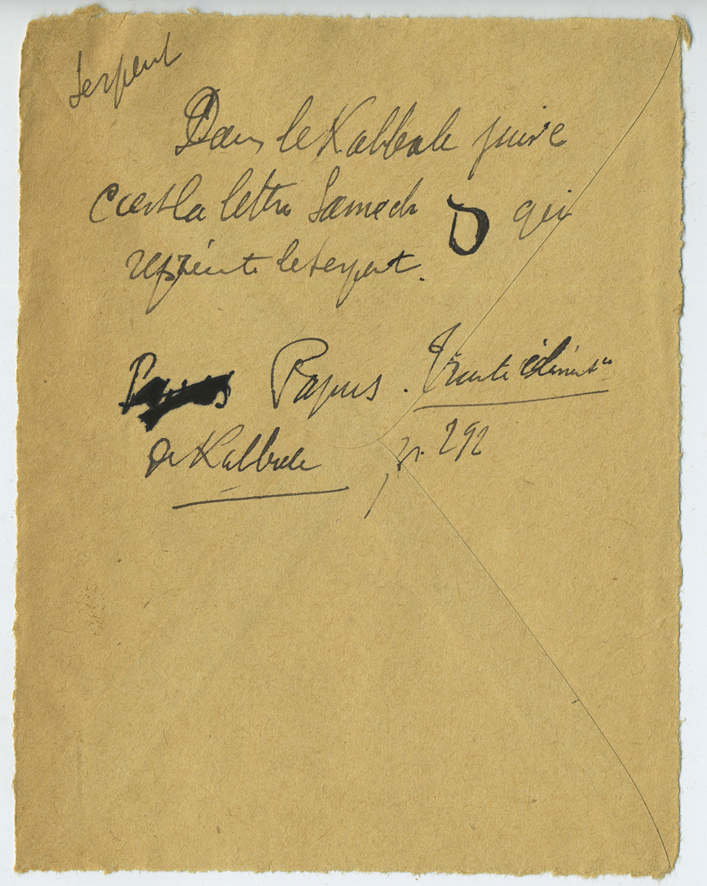 Serpent
Dans le Kabbale juive
c'est la lettre Samech ס qui
représente le serpent.
Papus. Traité élément re
de Kabbale, p. 292